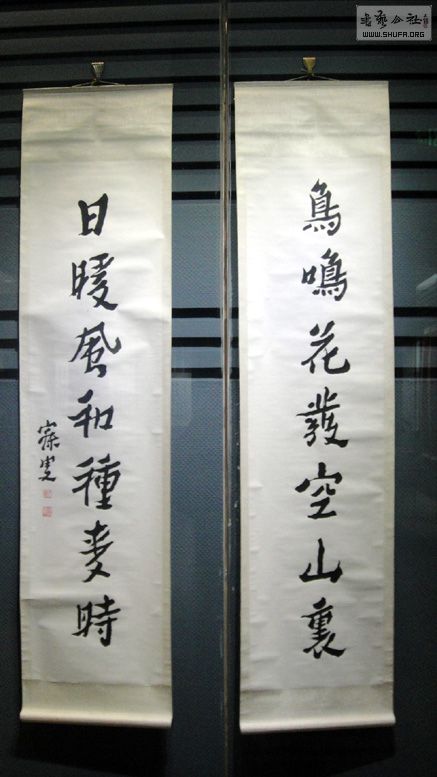 鳥鳴花發空山裏
日暖風和種麥時
寐叟
書藝公社
WWW.SHUFA.ORG